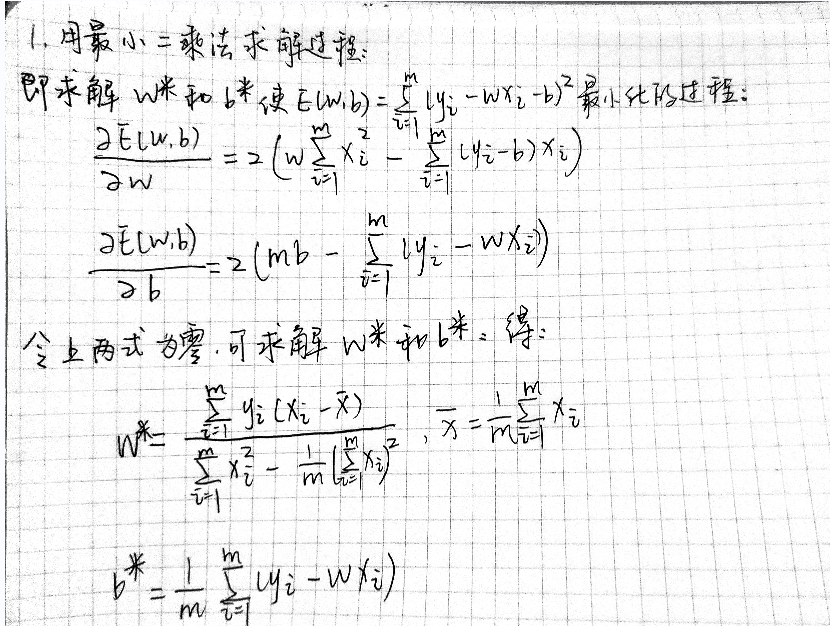 1. 用最小二乘法求解过程:
即求解 w* 和 b* 使 E(w,b) = ∑_{i=1}^{m} (y_i - wx_i - b)² 最小化的过程:
∂E(w,b)/∂w = 2(w∑_{i=1}^{m} x_i² - ∑_{i=1}^{m} (y_i - b)x_i)
∂E(w,b)/∂b = 2(mb - ∑_{i=1}^{m} (y_i - wx_i))
令上两式为零,可求解 w* 和 b*: 得:
w* = ∑_{i=1}^{m} y_i(x_i - x̄) / (∑_{i=1}^{m} x_i² - 1/m (∑_{i=1}^{m} x_i)²), x̄ = 1/m ∑_{i=1}^{m} x_i
b* = 1/m ∑_{i=1}^{m} (y_i - wx_i)